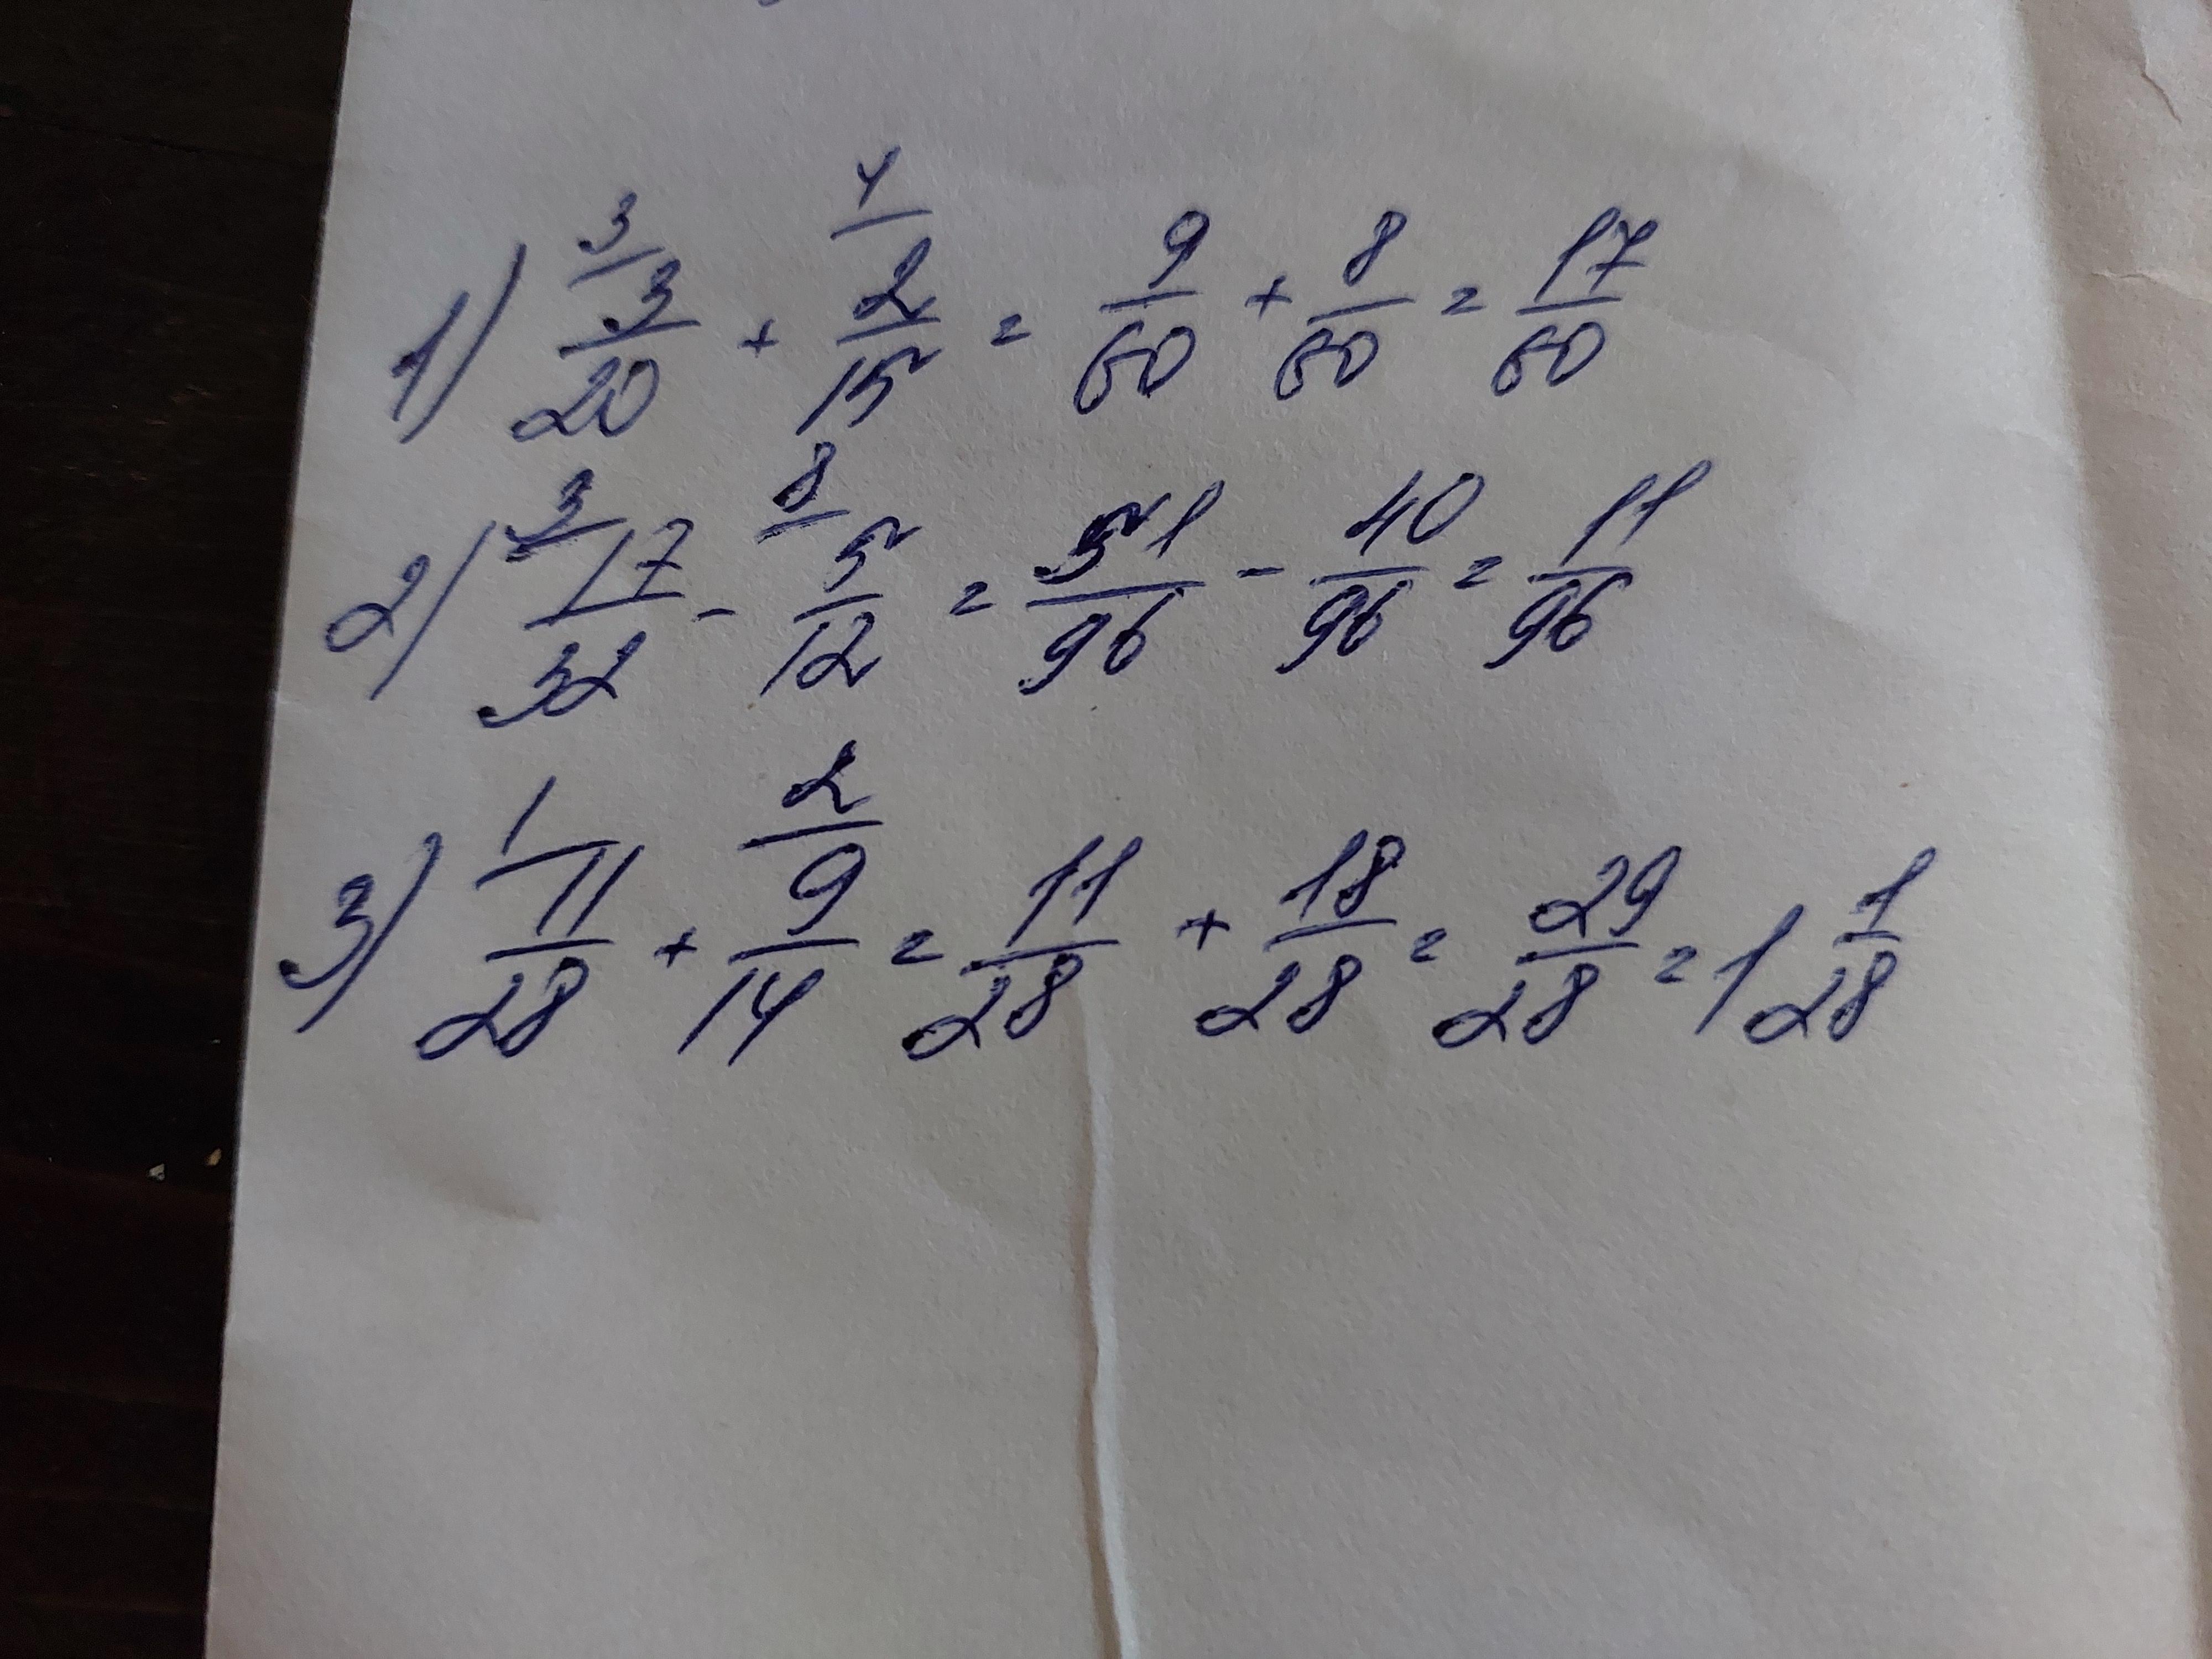 1) ³⁄ 3/20 + ⁴⁄ 2/15 = 9/60 + 8/60 = 17/60
2) ³⁄ 17/32 - ⁸⁄ 5/12 = 51/96 - 40/96 = 11/96
3) ¹⁄ 11/28 + ²⁄ 9/14 = 11/28 + 18/28 = 29/28 = 1 1/28